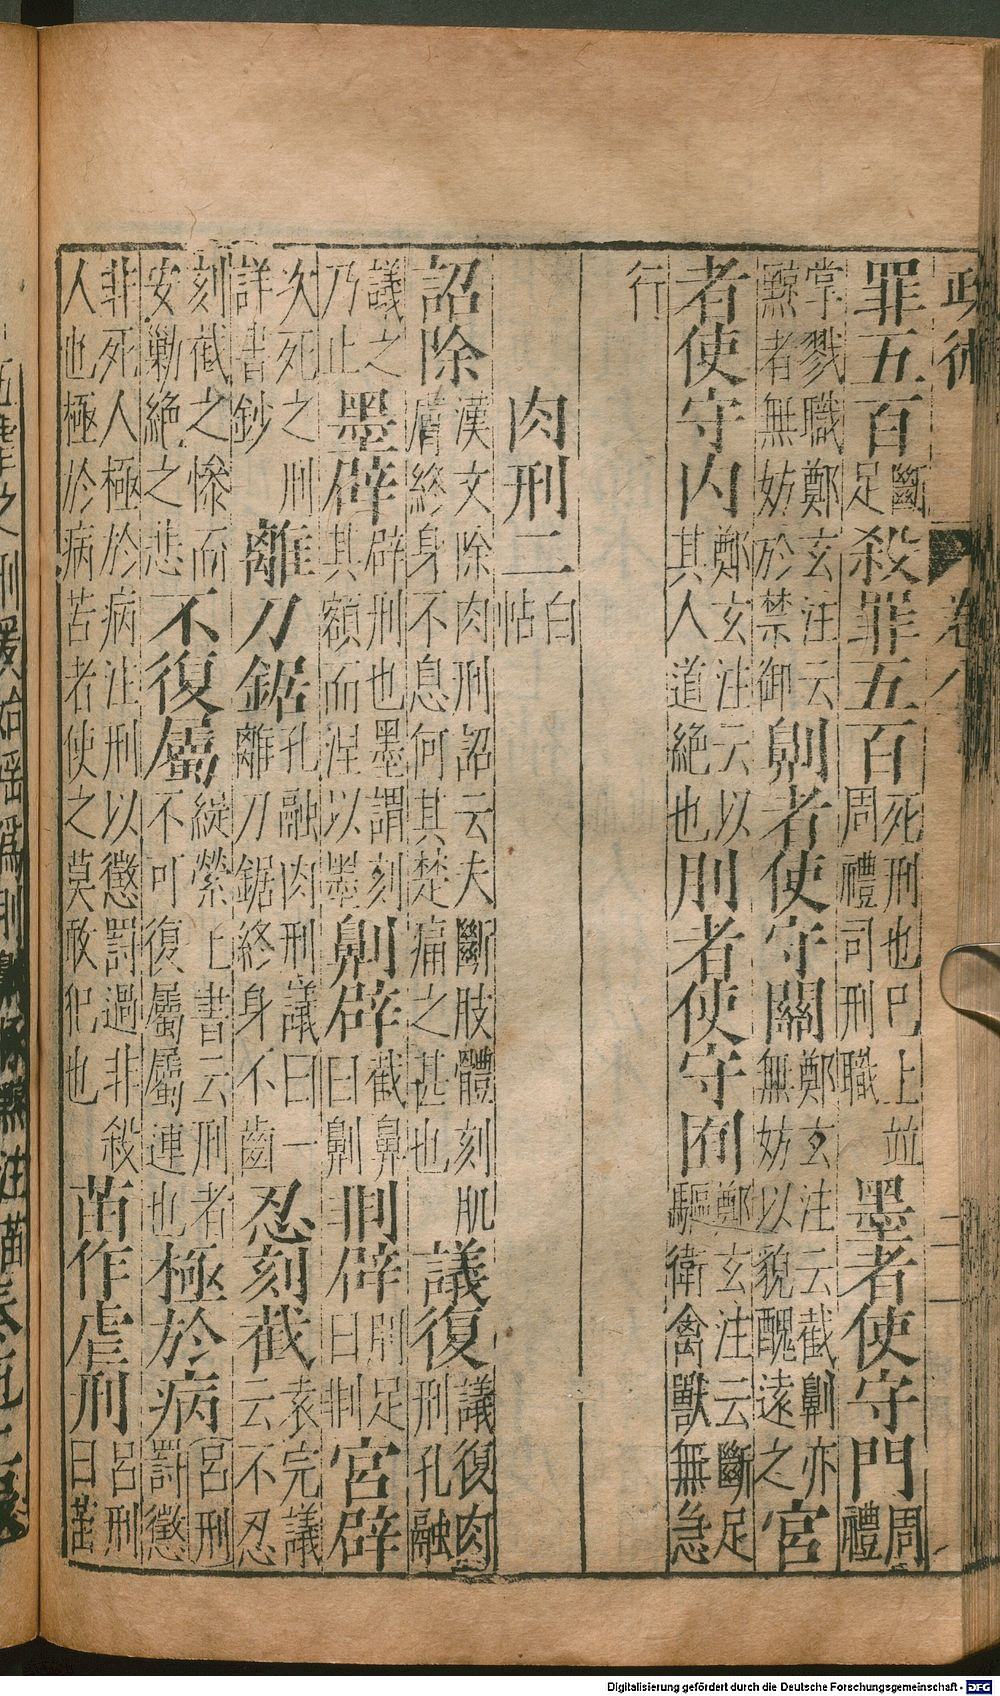 政術
罪五百斷足殺罪五百死刑也已上並周禮司刑職墨者使守門周禮
掌戮職鄭玄注云黥者無妨於禁御劓者使守關鄭玄注云截劓亦無妨以貌醜遠之宮
者使守内鄭玄注云以其人道絶也刖者使守囿鄭玄注云斷足驅衛禽獸無急
行
肉刑二白帖
詔除漢文除肉刑詔云夫斷肢體刻肌膚終身不息何其楚痛之甚也議復議復肉刑孔融
議之乃止墨辟辟刑也墨謂刻其額而涅以墨劓辟截鼻曰劓剕辟刖足曰剕宮辟
次死之刑詳書鈔離刀鋸孔融肉刑議曰一離刀鋸終身不齒忍刻截袁完議云不忍
刻截之慘而安勦絶之悲不復屬緹縈上書云刑者不可復屬屬連也極於病呂刑罰懲
非死人極於病注刑以懲罰過非殺人也極於病苦者使之莫敢犯也苗作虐刑呂刑曰苗
Digitalisierung gefördert durch die Deutsche Forschungsgemeinschaft - DFG